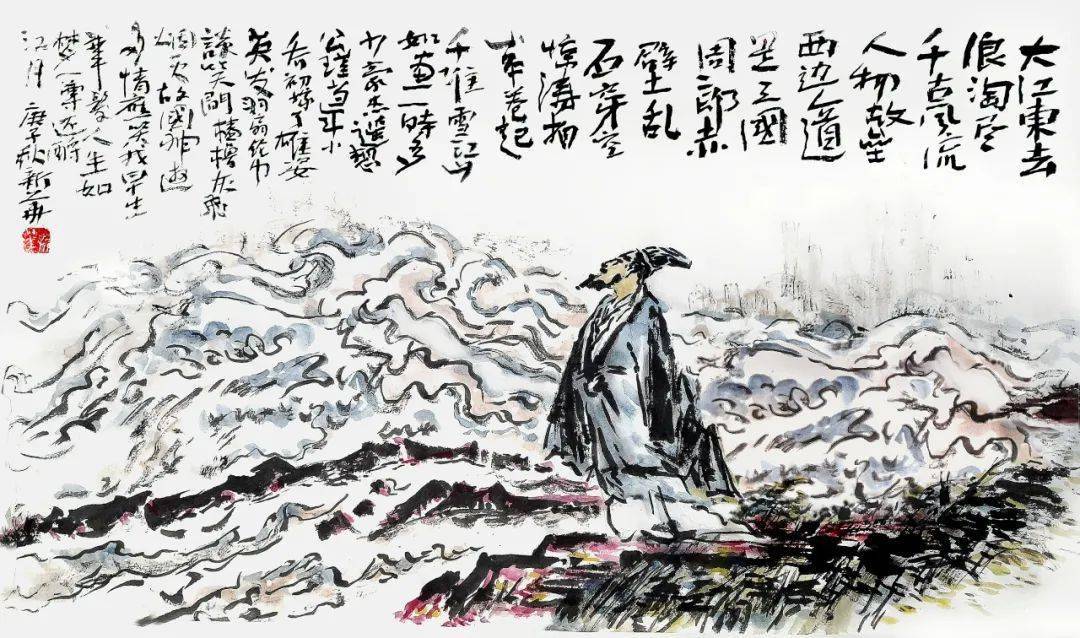 大江東去
浪淘尽
千古風流
人物故壘
西边人道
是三國
周郎赤
壁乱
石穿空
惊涛拍
岸卷起
千堆雪江山
如画一時多
少豪杰遥想
公瑾当年小
乔初嫁了雄姿
英发羽扇纶巾
談笑間樯橹灰飛
烟灭故國神游
多情應笑我早生
華髮人生如
梦一尊还酹
江月 庚子秋